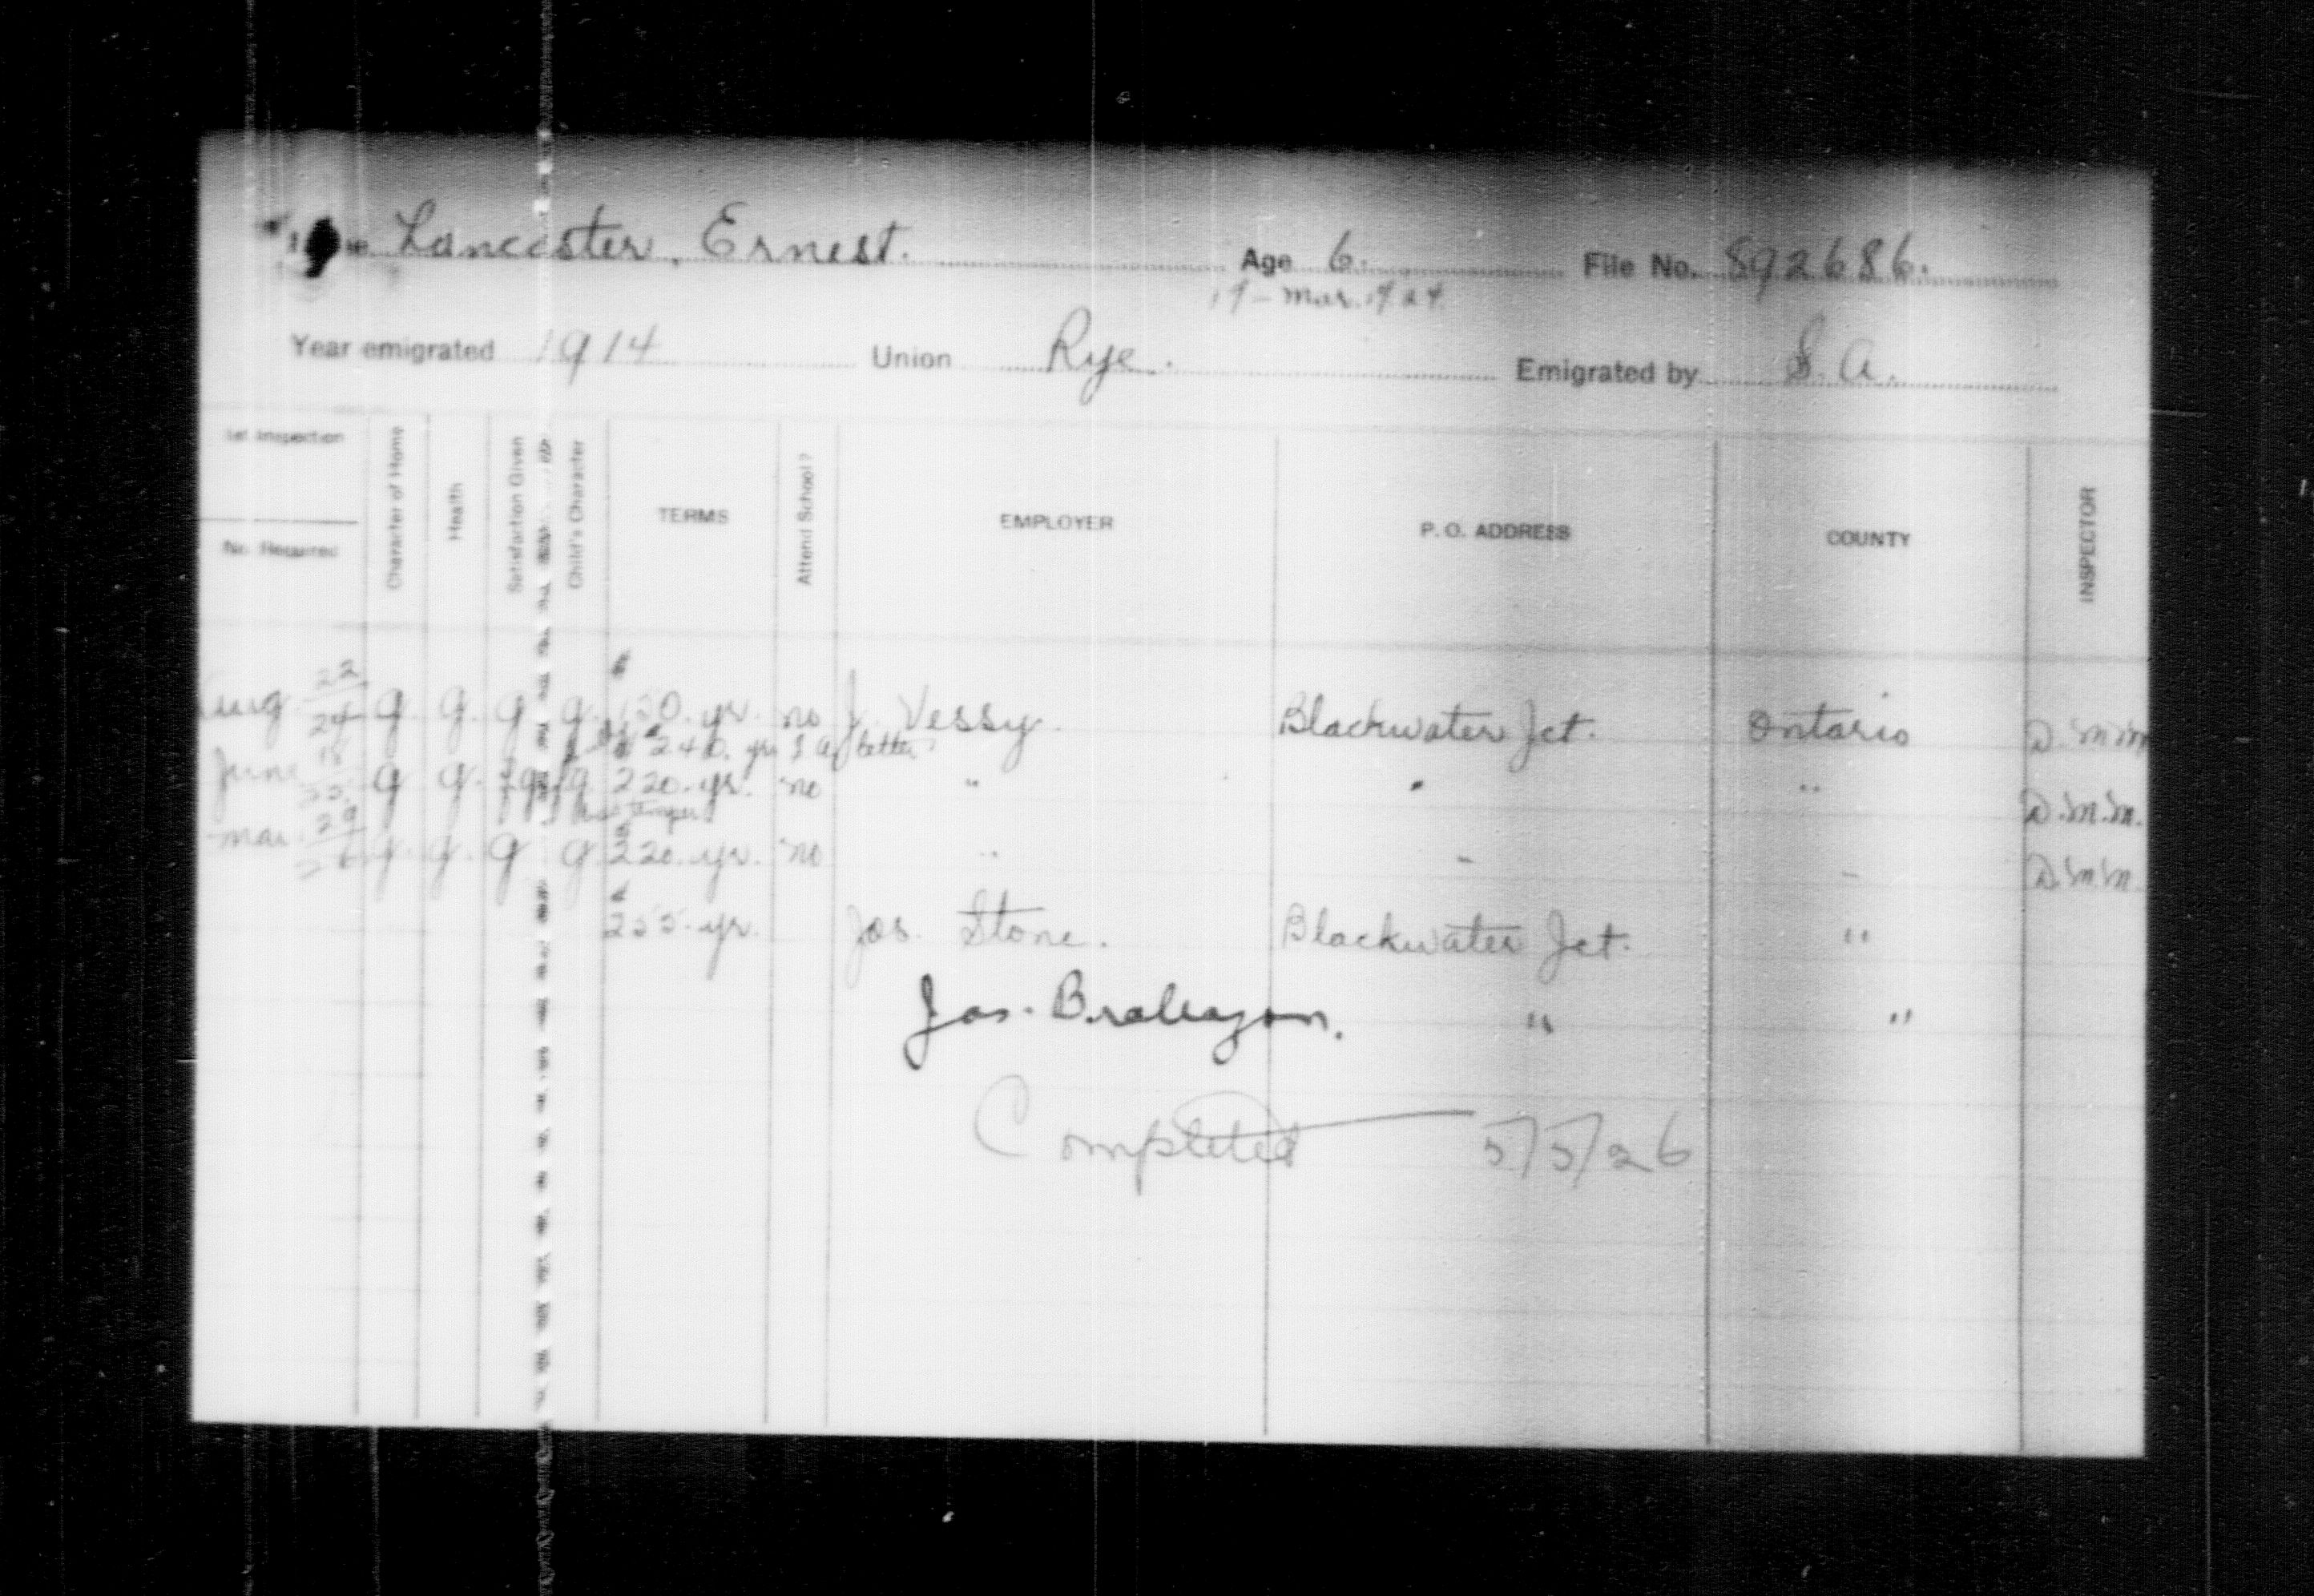 Lancaster, Ernest. Age 6. File No. 892686.
19 - Mar. 1924.
Year emigrated 1914 Union Rye. Emigrated by S. A.
1st Inspection
No. Required
Character of Home
Health
Satisfaction Given
Child's Character
TERMS
Attend School?
EMPLOYER
P. O. ADDRESS
COUNTY
INSPECTOR
Aug 22/24 g g. g g. yr. no J. Vessy. Blackwater Jct. Ontario D.M.M.
240. yr S A letter
June g g. g 220. yr. no " " " D.M.M.
Bad temper
Mar. 29/26 g. g. g g 220. yr. no " " " D.M.M.
255. yr. Jos. Stone. Blackwater Jct. "
Jas. Brabazon. " "
Completed 5/5/26